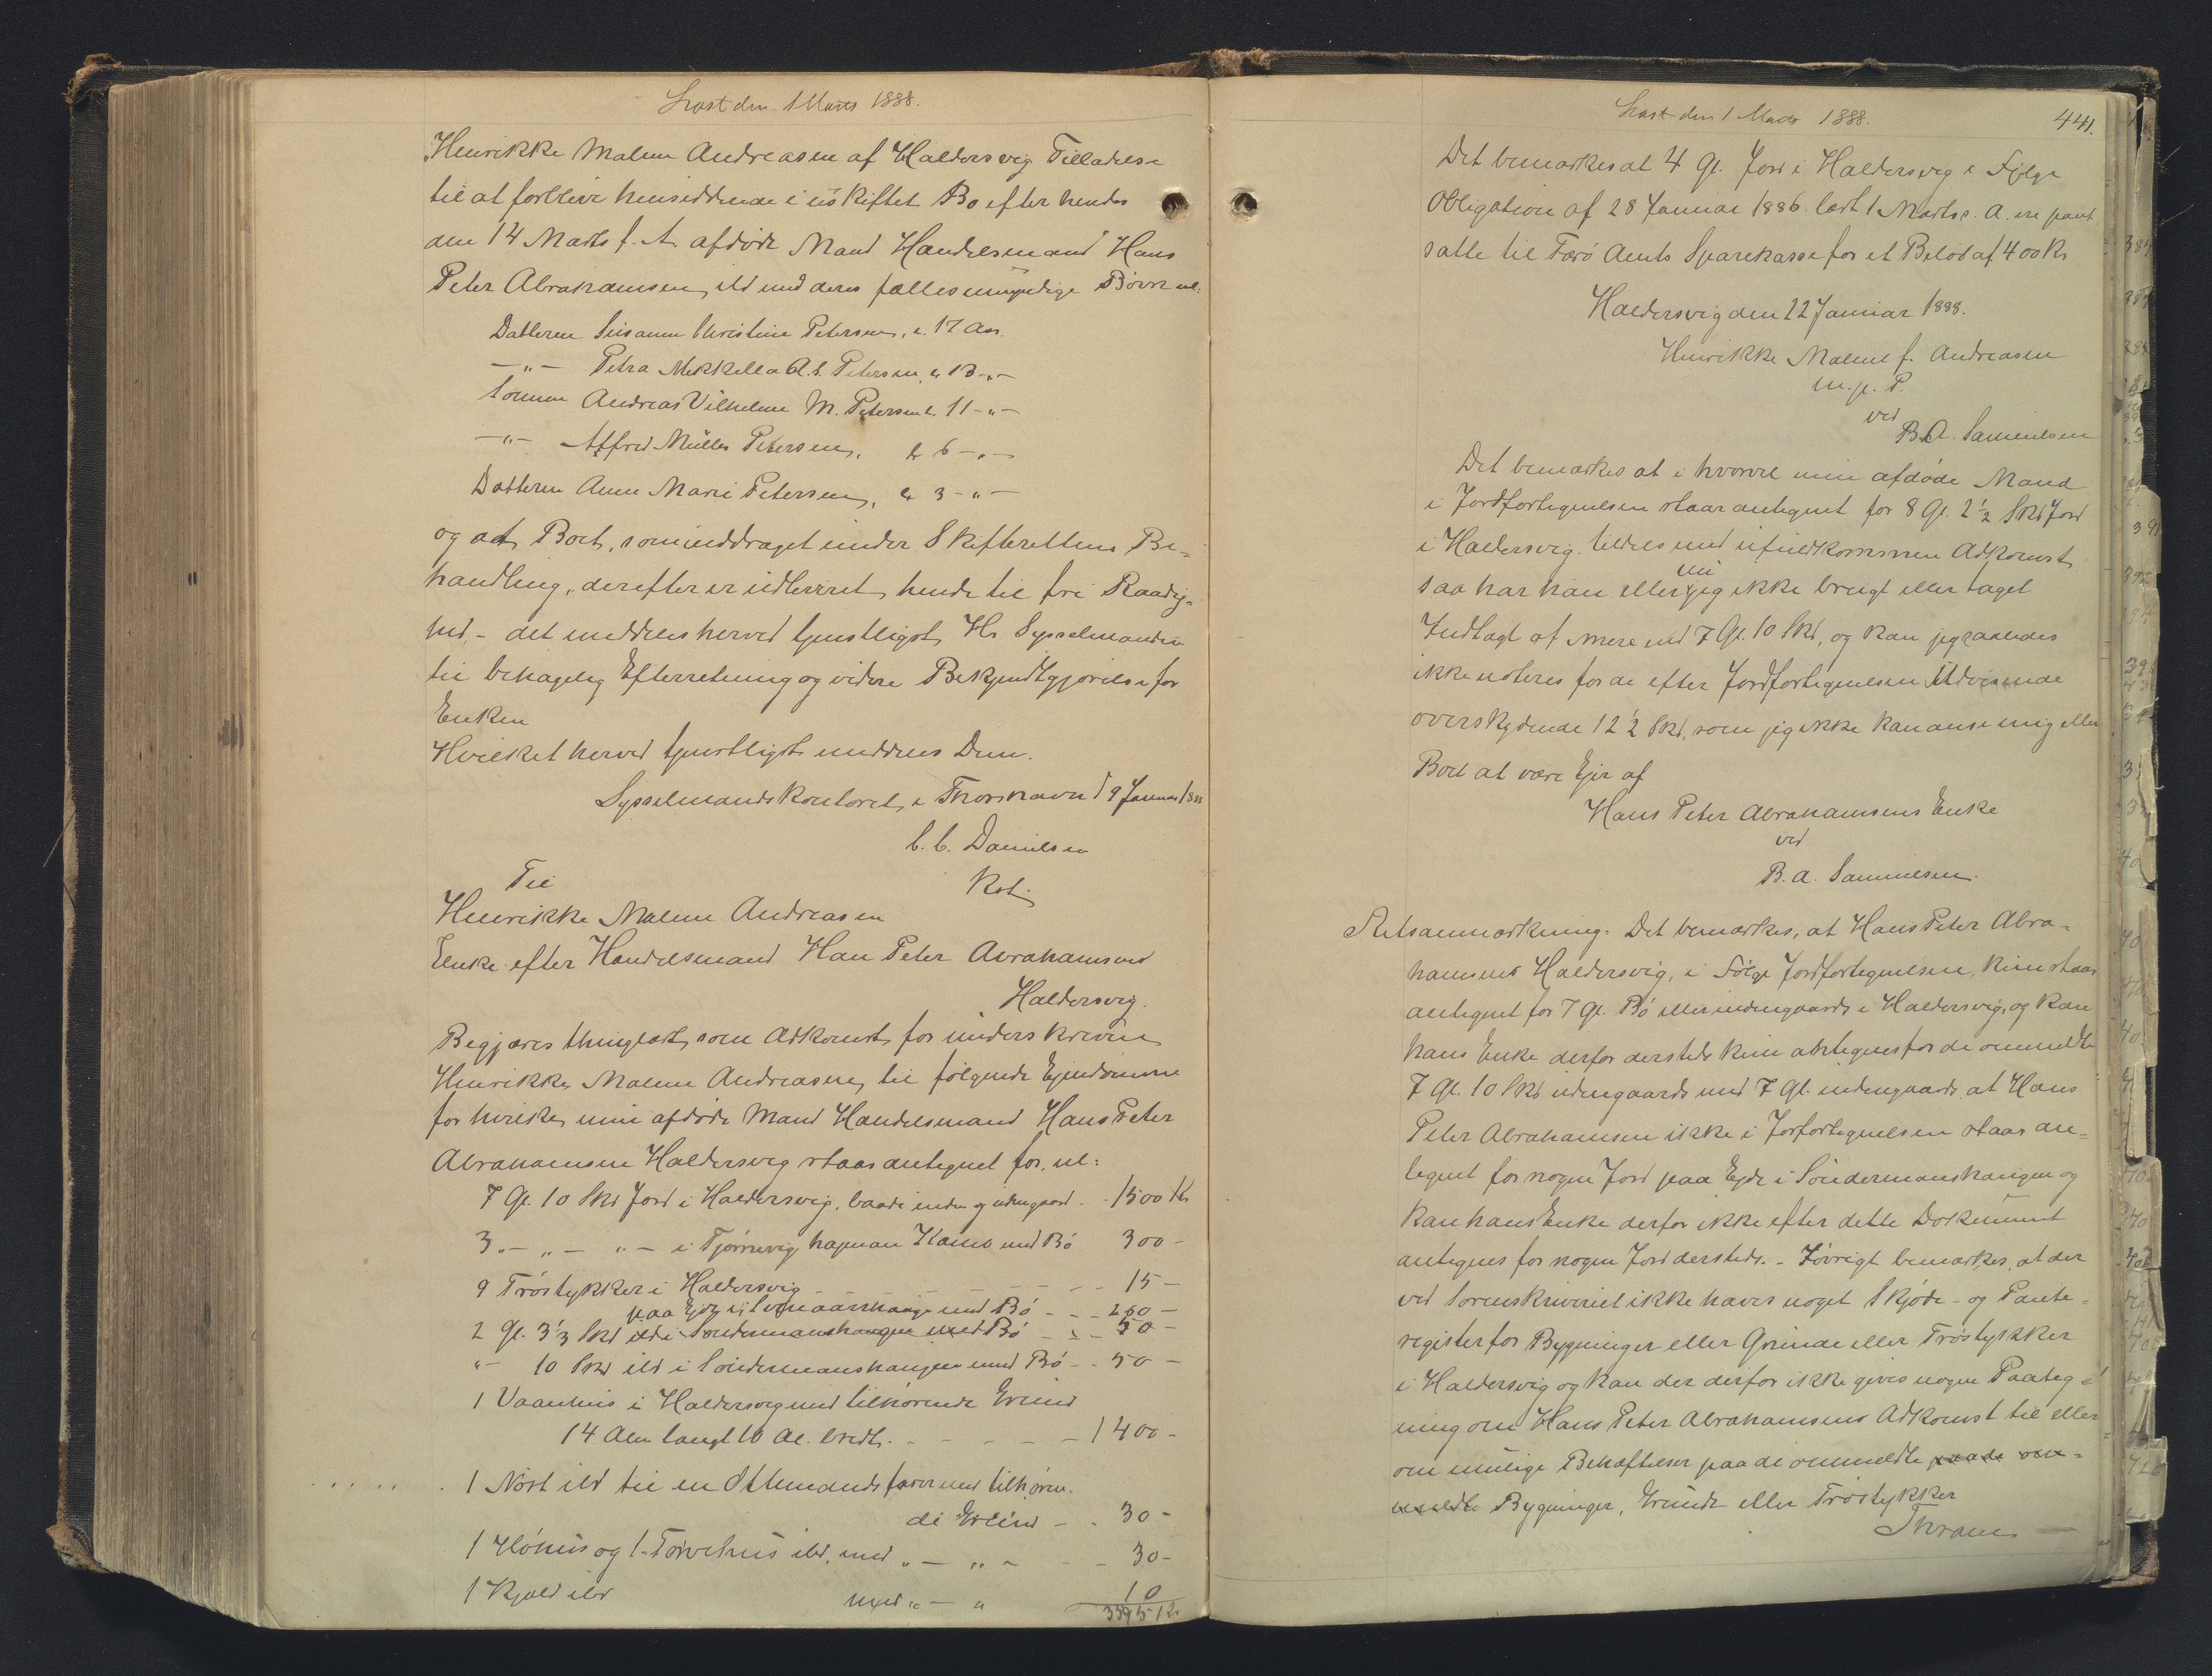 Læst den 1 Marts 1888.
Henrikke Malene Andreasen af Haldersvig Tilladelse
til at forblive hensiddende i uskiftet Bo efter hendes
den 14 Marts f. A. afdøde Mand Handelsmand Hans
Peter Abrahamsen, ibd med deres fælles umyndige Børn nl:
Datteren Susanne Christine Petersen, e. 17 Aar.
—"— Petra Mikkella A. S. Petersen, e. 13 -"-
Sønnen Andreas Vilhelm M. Petersen e. 11 -"-
—"— Alfred Müller Petersen, e. 6 -"-
Datteren Anne Marie Petersen, e. 3 -"-
og at Boet, som inddraget under Skifterettens Be=
handling, derefter er udleveret hende til fri Raadig=
hed, - det meddeles herved tjenstligst Hr Sysselmanden
til behagelig Efterretning og videre Bekjendtgjørelse for
Enken
Hvilket herved tjenstligst meddeles Dem.
Sysselmandskontoret i Thorshavn d 9 Januar 1888
C. C. Danielsen
Kst.
Til
Henrikke Malene Andreasen
Enke efter Handelsmand Han Peter Abrahamsens
Haldersvig.
Begjæres thinglæst som Adkomst for underskrevne
Henrikke Malene Andreasen, til følgende Ejendomme
for hvilke min afdøde Mand Handelsmand Hans Peter
Abrahamsen Haldersvig staar antegnet for, nl:
7 Gl. 10 Skd Jord i Haldersvig, baade inden og udengaard . - 1500 Kr
3 "- "- "- i Tjørnevig, hagman Kamb med Bø 300 -
9 Tröstykker i Haldersvig - - - - 15 -
paa Ejde i med Bø - - - 260 -
2 Gl. 3⅓ Skd ibd i Søndermanshaugen med Bø - - - 50 -
"- 10 Skd ibd i Søndermanshaugen med Bø - - 50 -
1 Vaanhus i Haldersvig med tilhørende Grund
14 Alen langt 10 Al. bredt. - - - - 1400 -
1 Nøst ibd til en Ottemandsfarer med tilhøren-
de Grund - - 30 -
1 Høhus og 1 Tørvehus ibd, med "- "- - - 30 -
1 Kjald ibd med "- " 10
3595 Kr
Læst den 1 Marts 1888.
441.
Det bemærkes at 4 Gl. Jord i Haldersvig i Følge
Obligation af 28 Januar 1886 læst 1 Marts s. A. ere pant
satte til Færø Amts Sparekasse for et Beløb af 400 Kr
Haldersvig den 22 Januar 1888.
Henrikke Malene f. Andreasen
m. p. P.
ved
B. A. Samuelsen
Det bemærkes at i hvorvel min afdøde Mand
i Jordfortegnelsen staar antegnet for 8 Gl. 2½ Skd Jord
i Haldersvig tildels med ufuldkommen Adkomst
saa har han eller jeg ikke brugt eller taget
nu
Indtægt af mere end 7 Gl. 10 Skd, og kan jeg saaledes
ikke noteres for de efter Jordfortegnelsen Udvisende
overskydende 12½ Skd, som jeg ikke kan anse mig eller
Boet at være Ejer af
Hans Peter Abrahamsens Enke
ved
B. A. Samuelsen.
Retsanmærkning: Det bemærkes, at Hans Peter Abra-
hamsens Haldersvig, i Følge Jordfortegnelsen, kun staar
antegnet for 7 Gl. Bø eller indengaards i Haldersvig, og kan
hans Enke derfor dersteds kun antegnes for de ommeldte
7 Gl. 10 Skd udengaards med 7 Gl. indengaards, at Hans
Peter Abrahamsen ikke i Jorfortegnelsen staar an=
tegnet for nogen Jord paa Ejde i Søndermanshaugen og
kan hans Enke derfor ikke efter dette Dokument
antegnes for nogen Jord dersteds. - Iøvrigt bemærkes, at der
ved Sorenskriveriet ikke haves noget Skjøde- og Pante=
register for Bygninger eller Grunde eller Tröstykker
i Haldersvig og kan der derfor ikke gives nogen Paateg=
ning om Hans Peter Abrahamsens Adkomst til eller
om mulige Behæftelser paa de ommeldte paa de om=
meldte Bygninger, Grunde eller Tröstykker
Skram